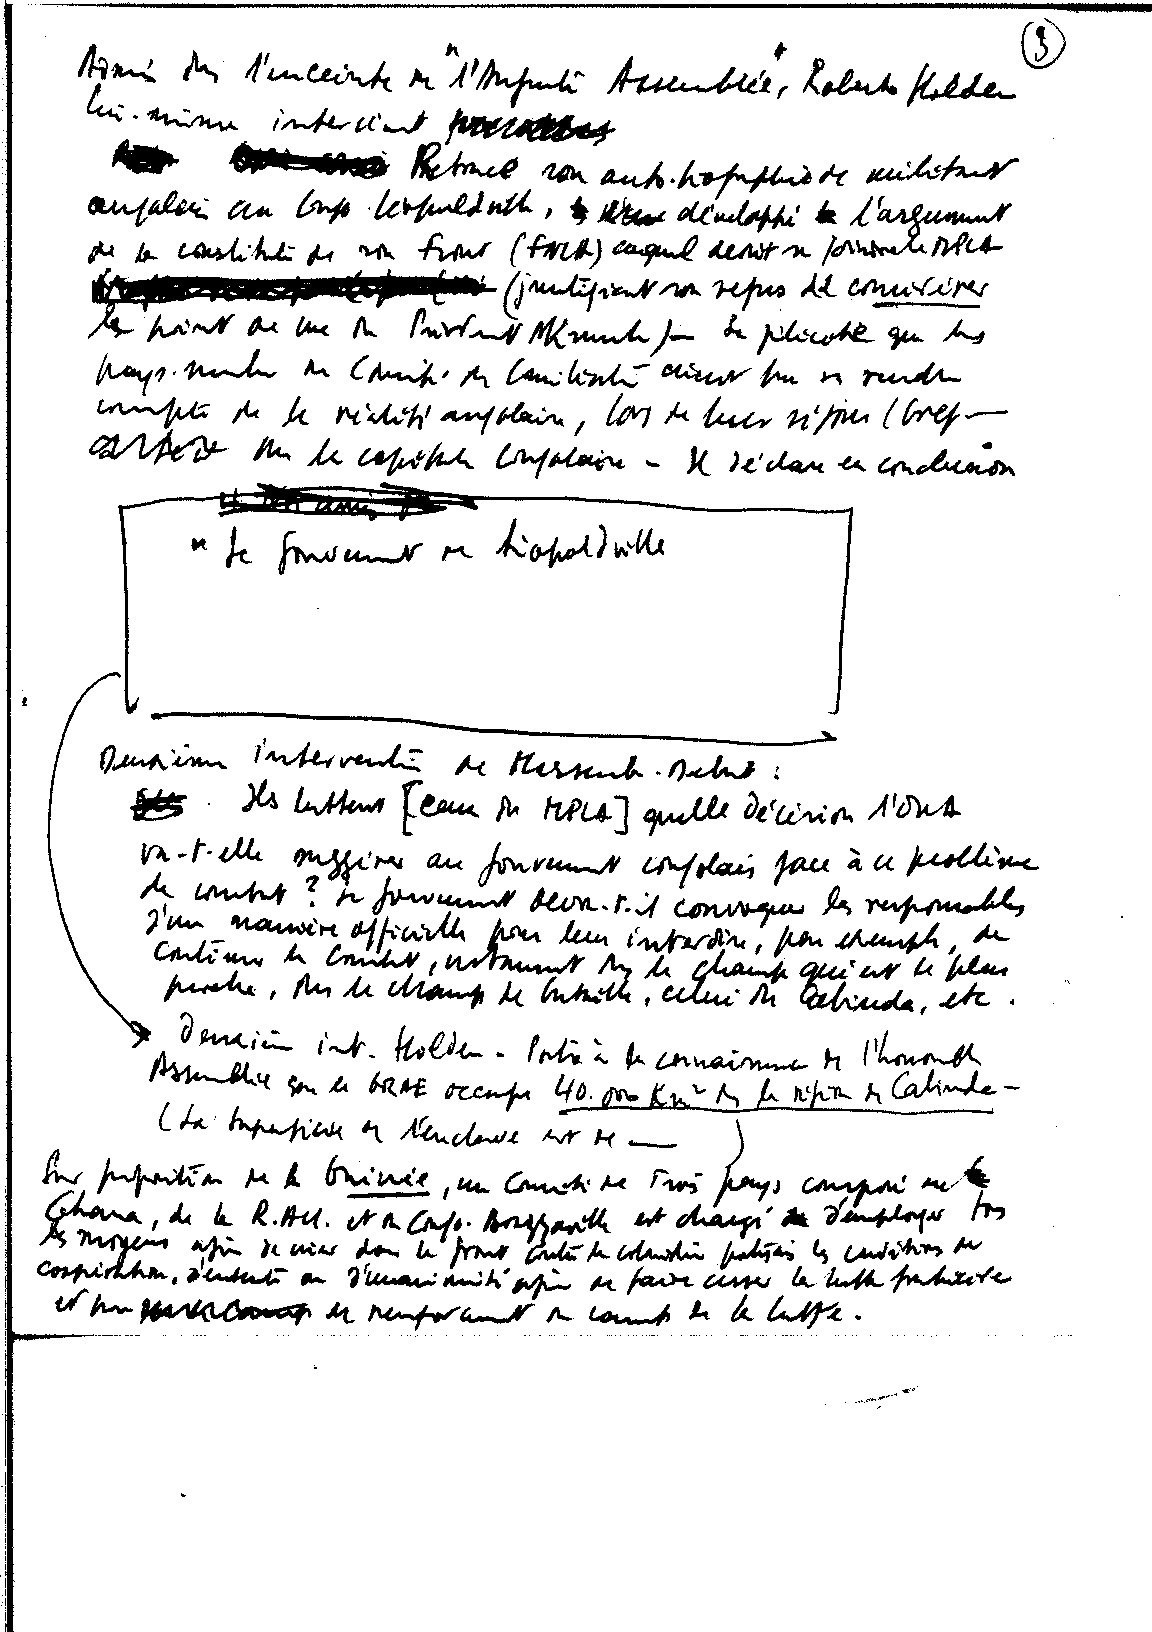 3
Admis dans l'enceinte de "l'Auguste Assemblée", Roberto Holden
lui-même intervient
Retrace son auto-biographie de militant
angolais au Congo Léopoldville, développé l'argument
de la constitution de son Front (FNLA) auquel devrait se joindre le MPLA
(justifiant son refus de
le point de vue du Président Nkrumah) — que les
pays membres du Comité de Conciliation aient pu se rendre
compte de la réalité angolaise, lors de leur séjour (bref —
dans la capitale congolaise — Il déclare en conclusion
" Le gouvernement de Léopoldville
Deuxième intervention de Massemba-Debat :
Ils luttent [ceux du MPLA] quelle décision l'OUA
va-t-elle suggérer au gouvernement congolais face à ce problème
de combat ? Le gouvernement devra-t-il convoquer les responsables
d'une manière officielle pour leur interdire, par exemple, de
continuer le combat, notamment dans le champ qui est le plus
proche, dans le champ de bataille, celui de Cabinda, etc.
Deuxième int. Holden - Porte à la connaissance de l'honorable
Assemblée que le GRAE occupe 40.000 Km² dans la région de Cabinda —
(La superficie de l'enclave est de —
Sur proposition de la Guinée, un Comité de Trois pays composé du
Ghana, de la R.AU. et du Congo-Brazzaville est chargé d'employer tous
les moyens afin de créer dans le front contre le colonialisme portugais les conditions de
coopération, d'entente ou d'unanimité afin de faire cesser la lutte fratricide
et pour de renforcement du camp de la lutte.